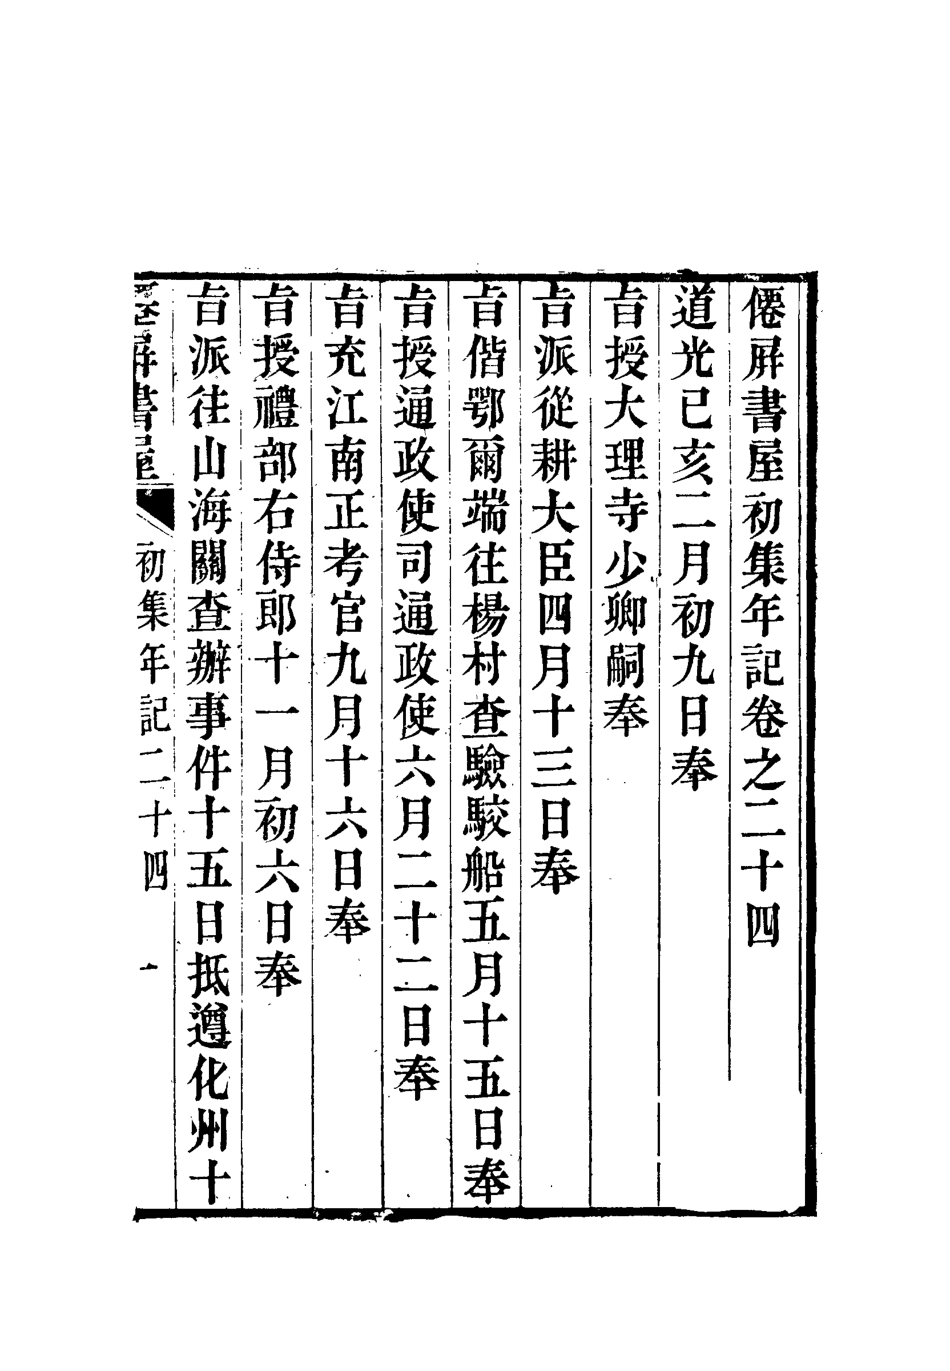 僊屛書屋初集年記卷之二十四
道光己亥二月初九日奉
旨授大理寺少卿嗣奉
旨派從耕大臣四月十三日奉
旨偕鄂爾端往楊村查驗駮船五月十五日奉
旨授通政使司通政使六月二十二日奉
旨充江南正考官九月十六日奉
旨授禮部右侍郎十一月初六日奉
旨派往山海關查辦事件十五日抵遵化州十
僊屛書屋 初集年記二十四 一